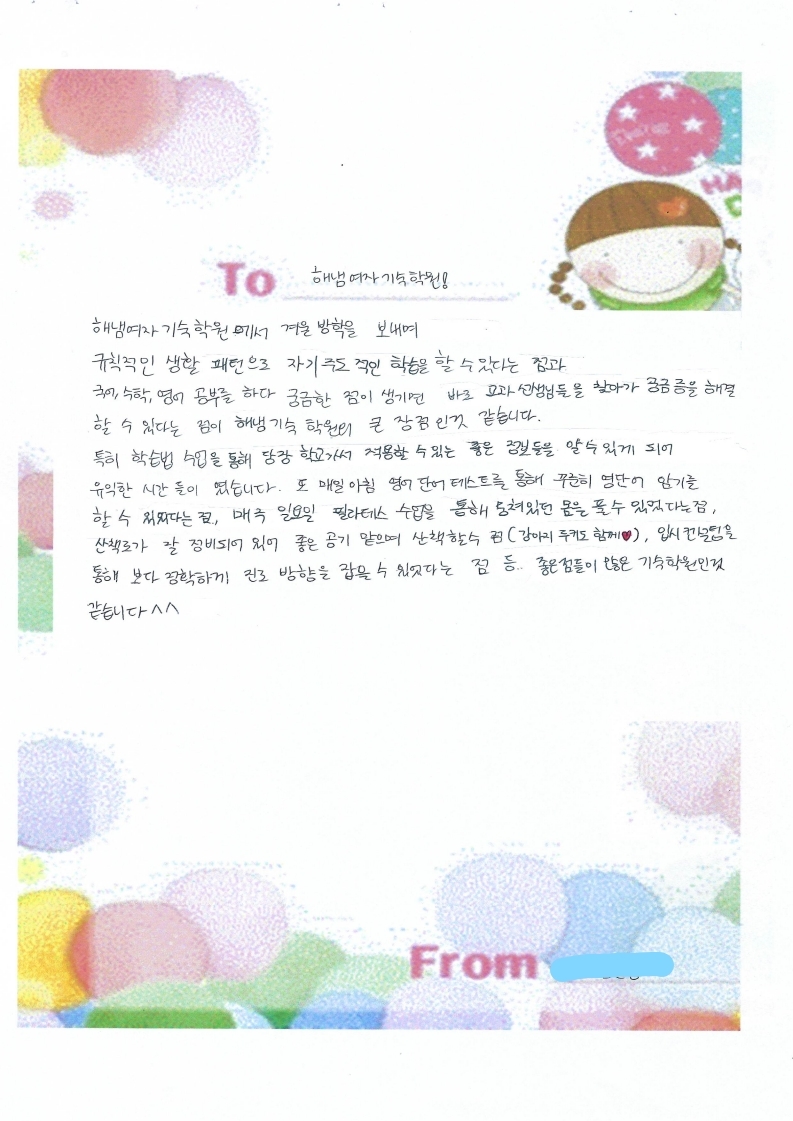 To 해냄여자기숙학원!
해냄여자기숙학원에서 겨울 방학을 보내며
규칙적인 생활 패턴으로 자기주도적인 학습을 할 수 있다는 점과
국어,수학,영어 공부를 하다 궁금한 점이 생기면 바로 교과선생님들을 찾아가 궁금증을 해결
할 수 있다는 점이 해냄기숙 학원의 큰 장점인것 같습니다.
특히 학습법 수업을 통해 당장 학교가서 적용할 수 있는 좋은 정보들을 알 수 있게 되어
유익한 시간 들이 였습니다. 또 매일아침 영어단어테스트를 통해 꾸준히 영단어 암기를
할 수 있었다는 점, 매주 일요일 필라테스 수업을 통해 뭉쳐있던 몸을 풀 수 있었다는점,
산책로가 잘 정비되어 있어 좋은 공기 맡으며 산책할수 점(강아지 두키도 함께♥), 입시컨설팅을
통해 보다 정확하게 진로 방향을 잡을 수 있었다는 점 등.. 좋은점들이 많은 기숙학원인것
같습니다^^
From